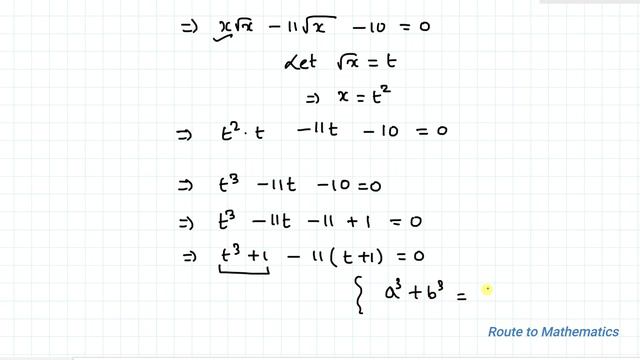 ⇒ x√x - 11√x - 10 = 0
Let √x = t
⇒ x = t²
⇒ t²·t - 11t - 10 = 0
⇒ t³ - 11t - 10 = 0
⇒ t³ - 11t - 11 + 1 = 0
⇒ t³ + 1 - 11(t+1) = 0
{ a³ + b³ =
Route to Mathematics